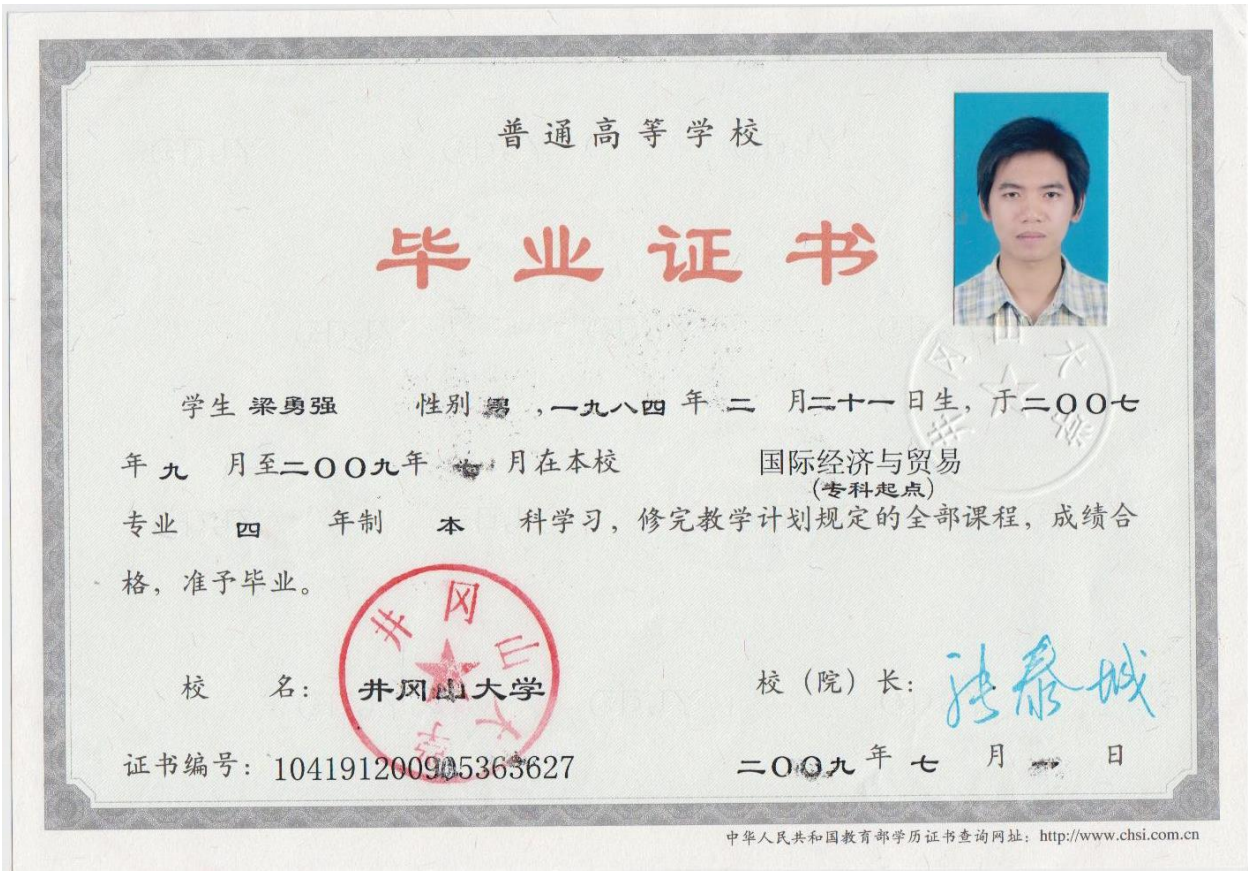 普通高等学校
毕业证书
学生 梁勇强 性别 男 ,一九八四 年 二 月二十一日生，于二〇〇七
年 九 月至二〇〇九年 七 月在本校 国际经济与贸易
(专科起点)
专业 四 年制 本 科学习，修完教学计划规定的全部课程，成绩合
格，准予毕业。
井冈山大学
校 名： 井冈山大学 校（院）长： 张泰城
证书编号：104191200905363627 二〇〇九 年 七 月 一 日
中华人民共和国教育部学历证书查询网址：http://www.chsi.com.cn
井冈山大学